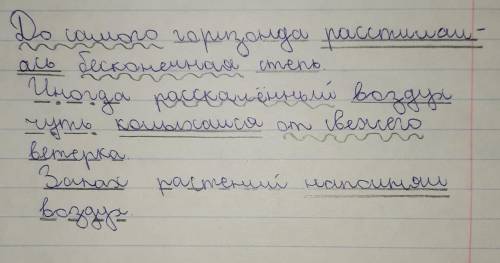 До самого горизонда расстилал-
ась бесконечная степь.
Иногда раскалённый воздух
чуть колыхался от свежего
ветерка.
Запах растений наполнял
воздух.